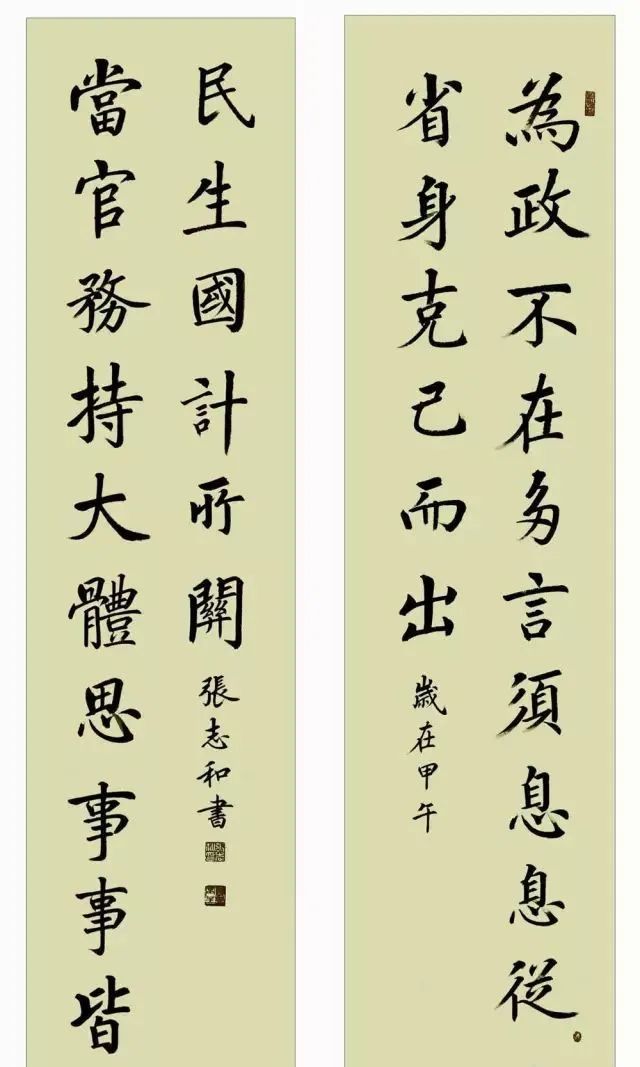 為政不在多言須息息從
省身克己而出
歲在甲午
當官務持大體思事事皆
民生國計所關
張志和書